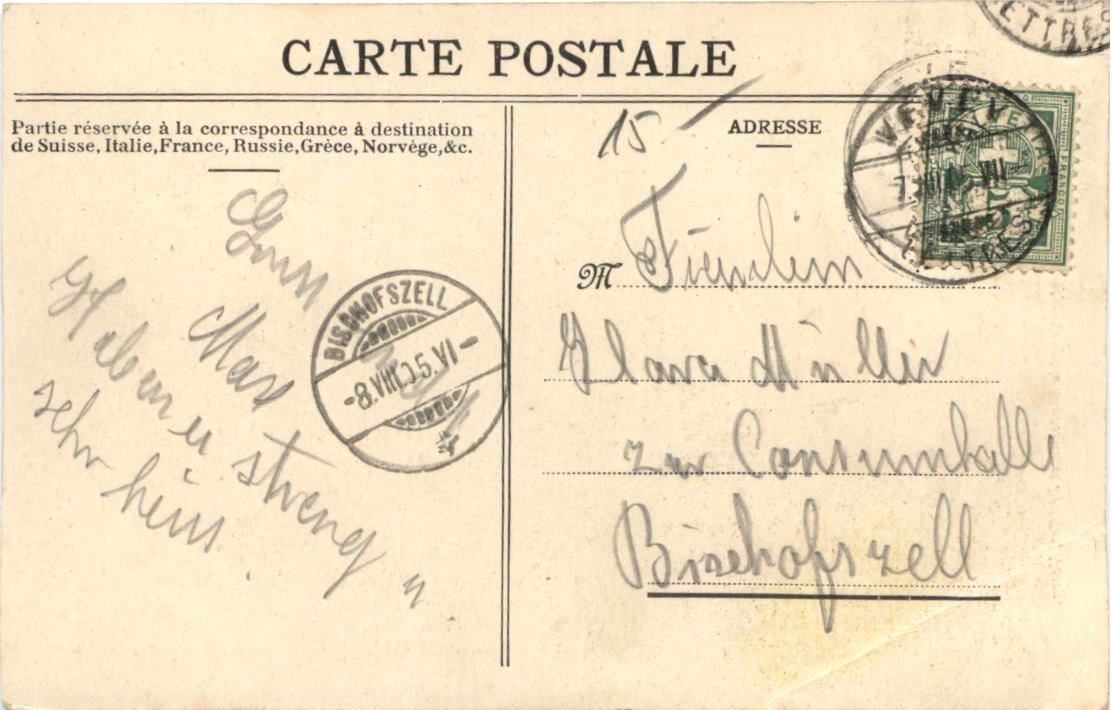 CARTE POSTALE
Partie réservée à la correspondance à destination
de Suisse, Italie, France, Russie, Grèce, Norvège, &c.
Gruss
Max
Haben es streng u.
sehr heiss
BISCHOFSZELL
-8.VIII.05.VI-
15.—
ADRESSE
M Fräulein
Klara Müller
zur Consumhalle
Bischofszell
VEVEY
LETTRES
HELVETIA
FRANCO
ETTRES